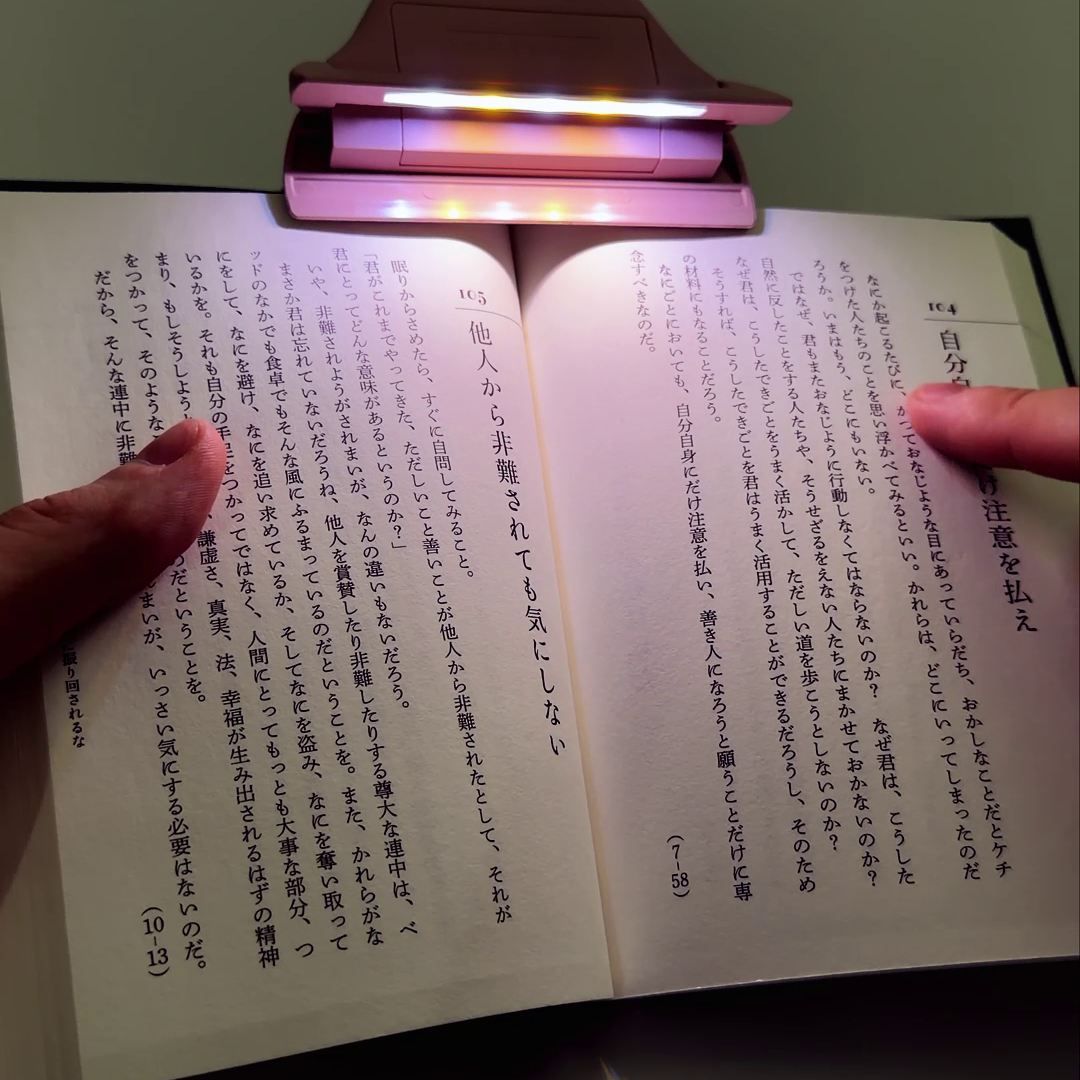 104
自分 け注意を払え
なにか起こるたびに、かつておなじような目にあっていらだち、おかしなことだとケチ
をつけた人たちのことを思い浮かべてみるといい。かれらは、どこにいってしまったのだ
ろうか。いまはもう、どこにもいない。
ではなぜ、君もまたおなじように行動しなくてはならないのか？　なぜ君は、こうした
自然に反したことをする人たちや、そうせざるをえない人たちにまかせておかないのか？
なぜ君は、こうしたできごとをうまく活かして、ただしい道を歩こうとしないのか？
そうすれば、こうしたできごとを君はうまく活用することができるだろうし、そのため
の材料にもなることだろう。
なにごとにおいても、自分自身にだけ注意を払い、善き人になろうと願うことだけに専
念すべきなのだ。
（7-58）
105
他人から非難されても気にしない
眠りからさめたら、すぐに自問してみること。
「君がこれまでやってきた、ただしいこと善いことが他人から非難されたとして、それが
君にとってどんな意味があるというのか？」
いや、非難されようがされまいが、なんの違いもないだろう。
まさか君は忘れていないだろうね、他人を賞賛したり非難したりする尊大な連中は、ベ
ッドのなかでも食卓でもそんな風にふるまっているのだということを。また、かれらがな
にをして、なにを避け、なにを追い求めているか、そしてなにを盗み、なにを奪い取って
いるかを。それも自分の手足をつかってではなく、人間にとってもっとも大事な部分、つ
まり、もしそうしよう 、謙虚さ、真実、法、幸福が生み出されるはずの精神
をつかって、そのような のだということを。
だから、そんな連中に非難 まいが、いっさい気にする必要はないのだ。
（10-13）
振り回されるな